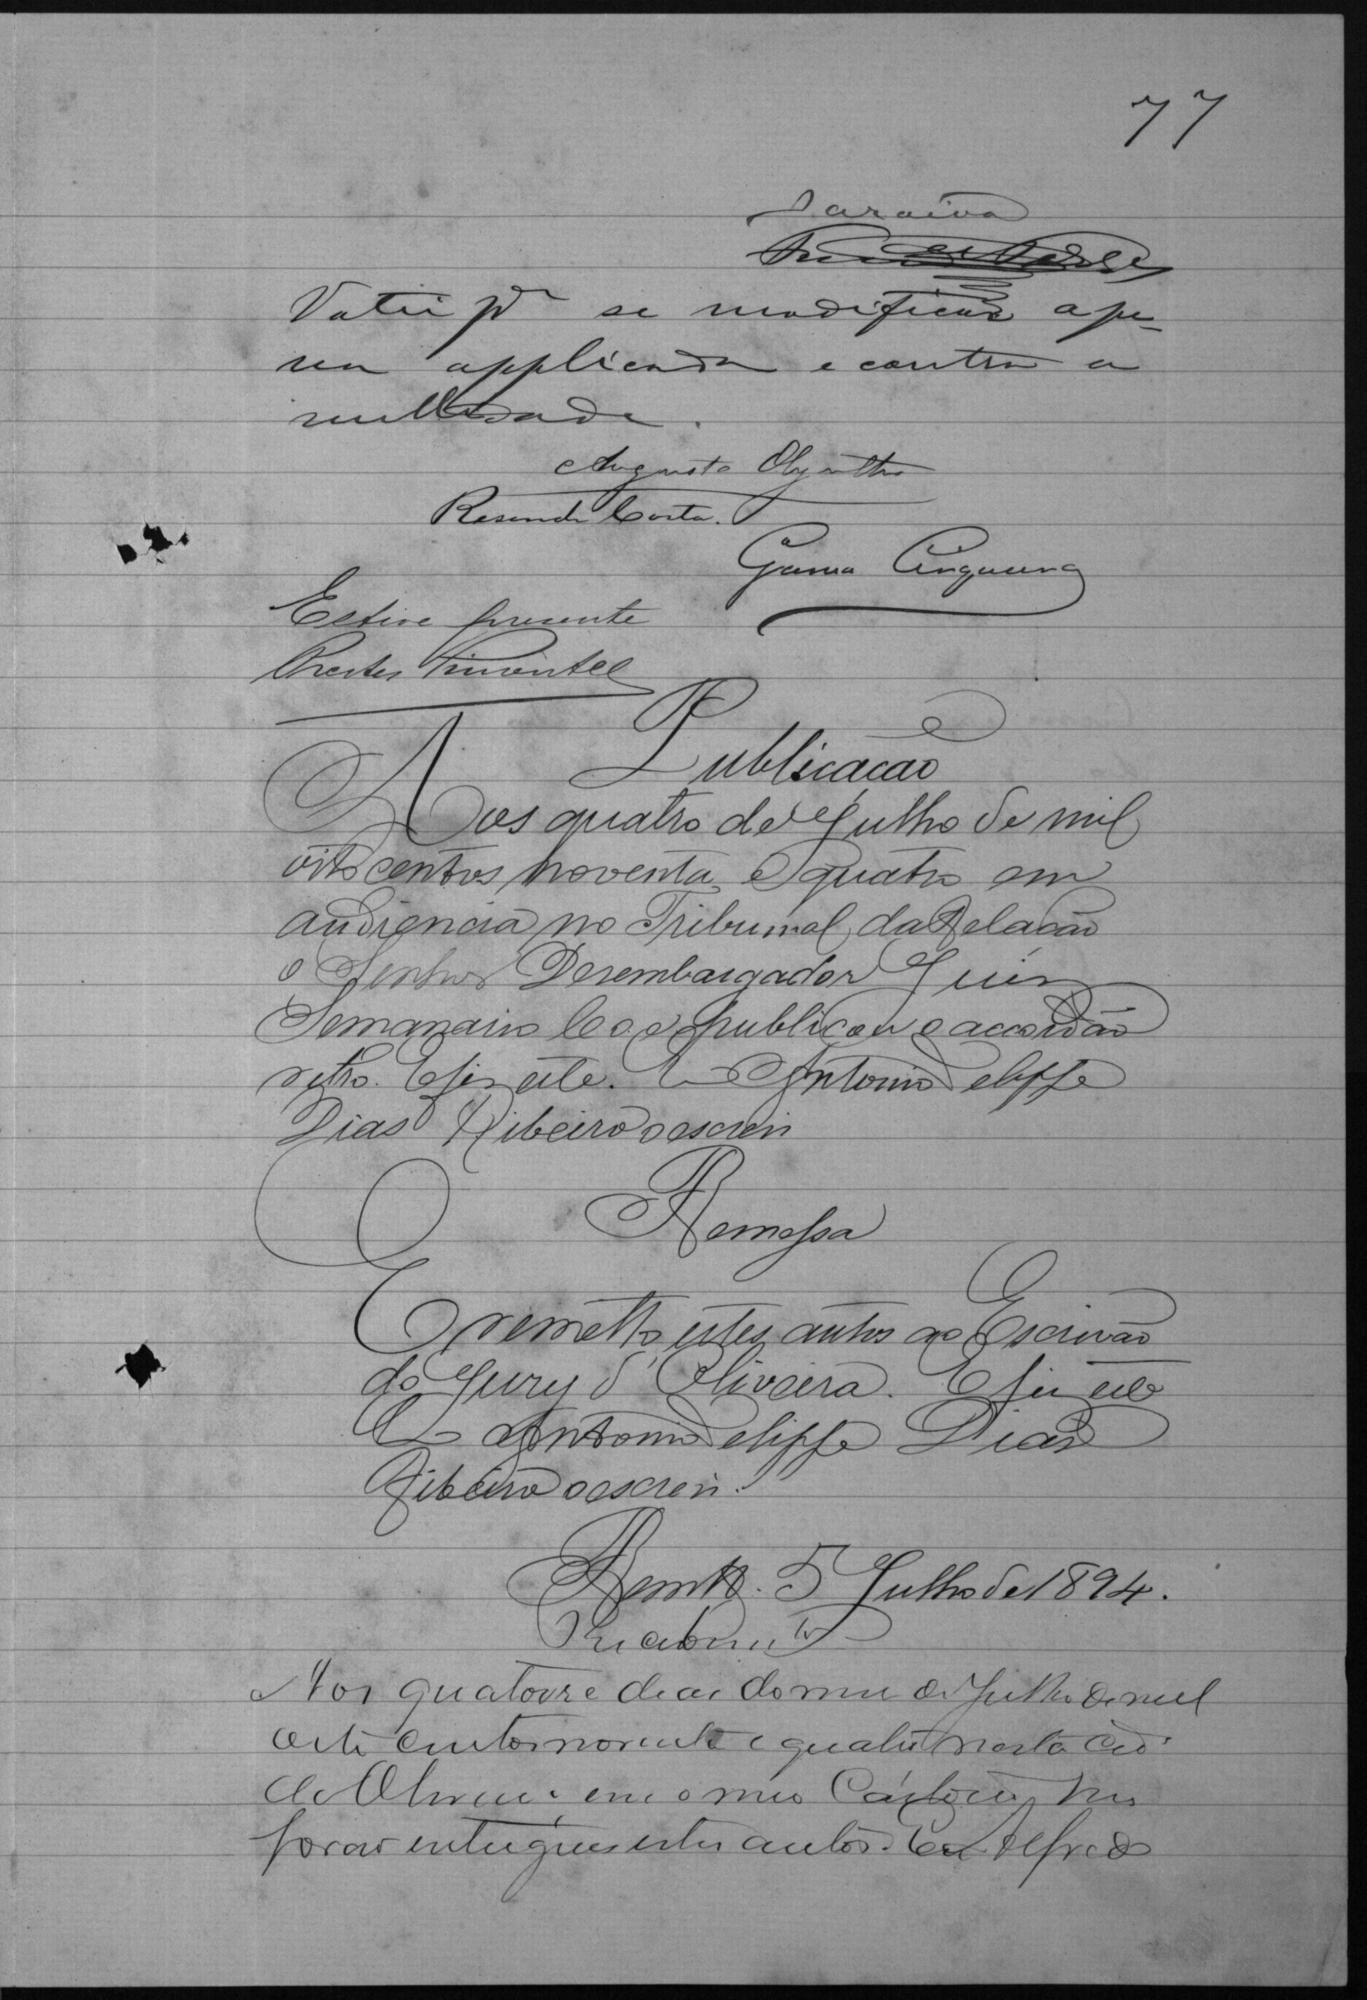 77
Saraiva
Votei pr se modificar a pe-
na applicada e contra a
nullidade.
Augusto Olyntho
Resende Costa.
Gama Cerqueira
Estive presente
Prestes Pimentel
Publicação
Aos quatro de Julho de mil
oito centos noventa e quatro em
audiencia no Tribunal da Relação
o Senhor Desembargador Juiz
Semanario leo e publicou o accordão
retro. E fiz este. Eu Antonio Felippe
Dias Ribeiro o escrevi
Remessa
E remetto estes autos ao Escrivão
do Jury d'Oliveira. E fiz este
Eu Antonio Felippe Dias
Ribeiro o escrevi.
Remtt. 5 Julho de 1894.
Recebimto
Aos quatorze dias do mez de Julho de mil
oito centos noventa e quatro nesta cid.
de Oliveira em o meu Cartorio me
forão entregues estes autos. Eu Alfredo